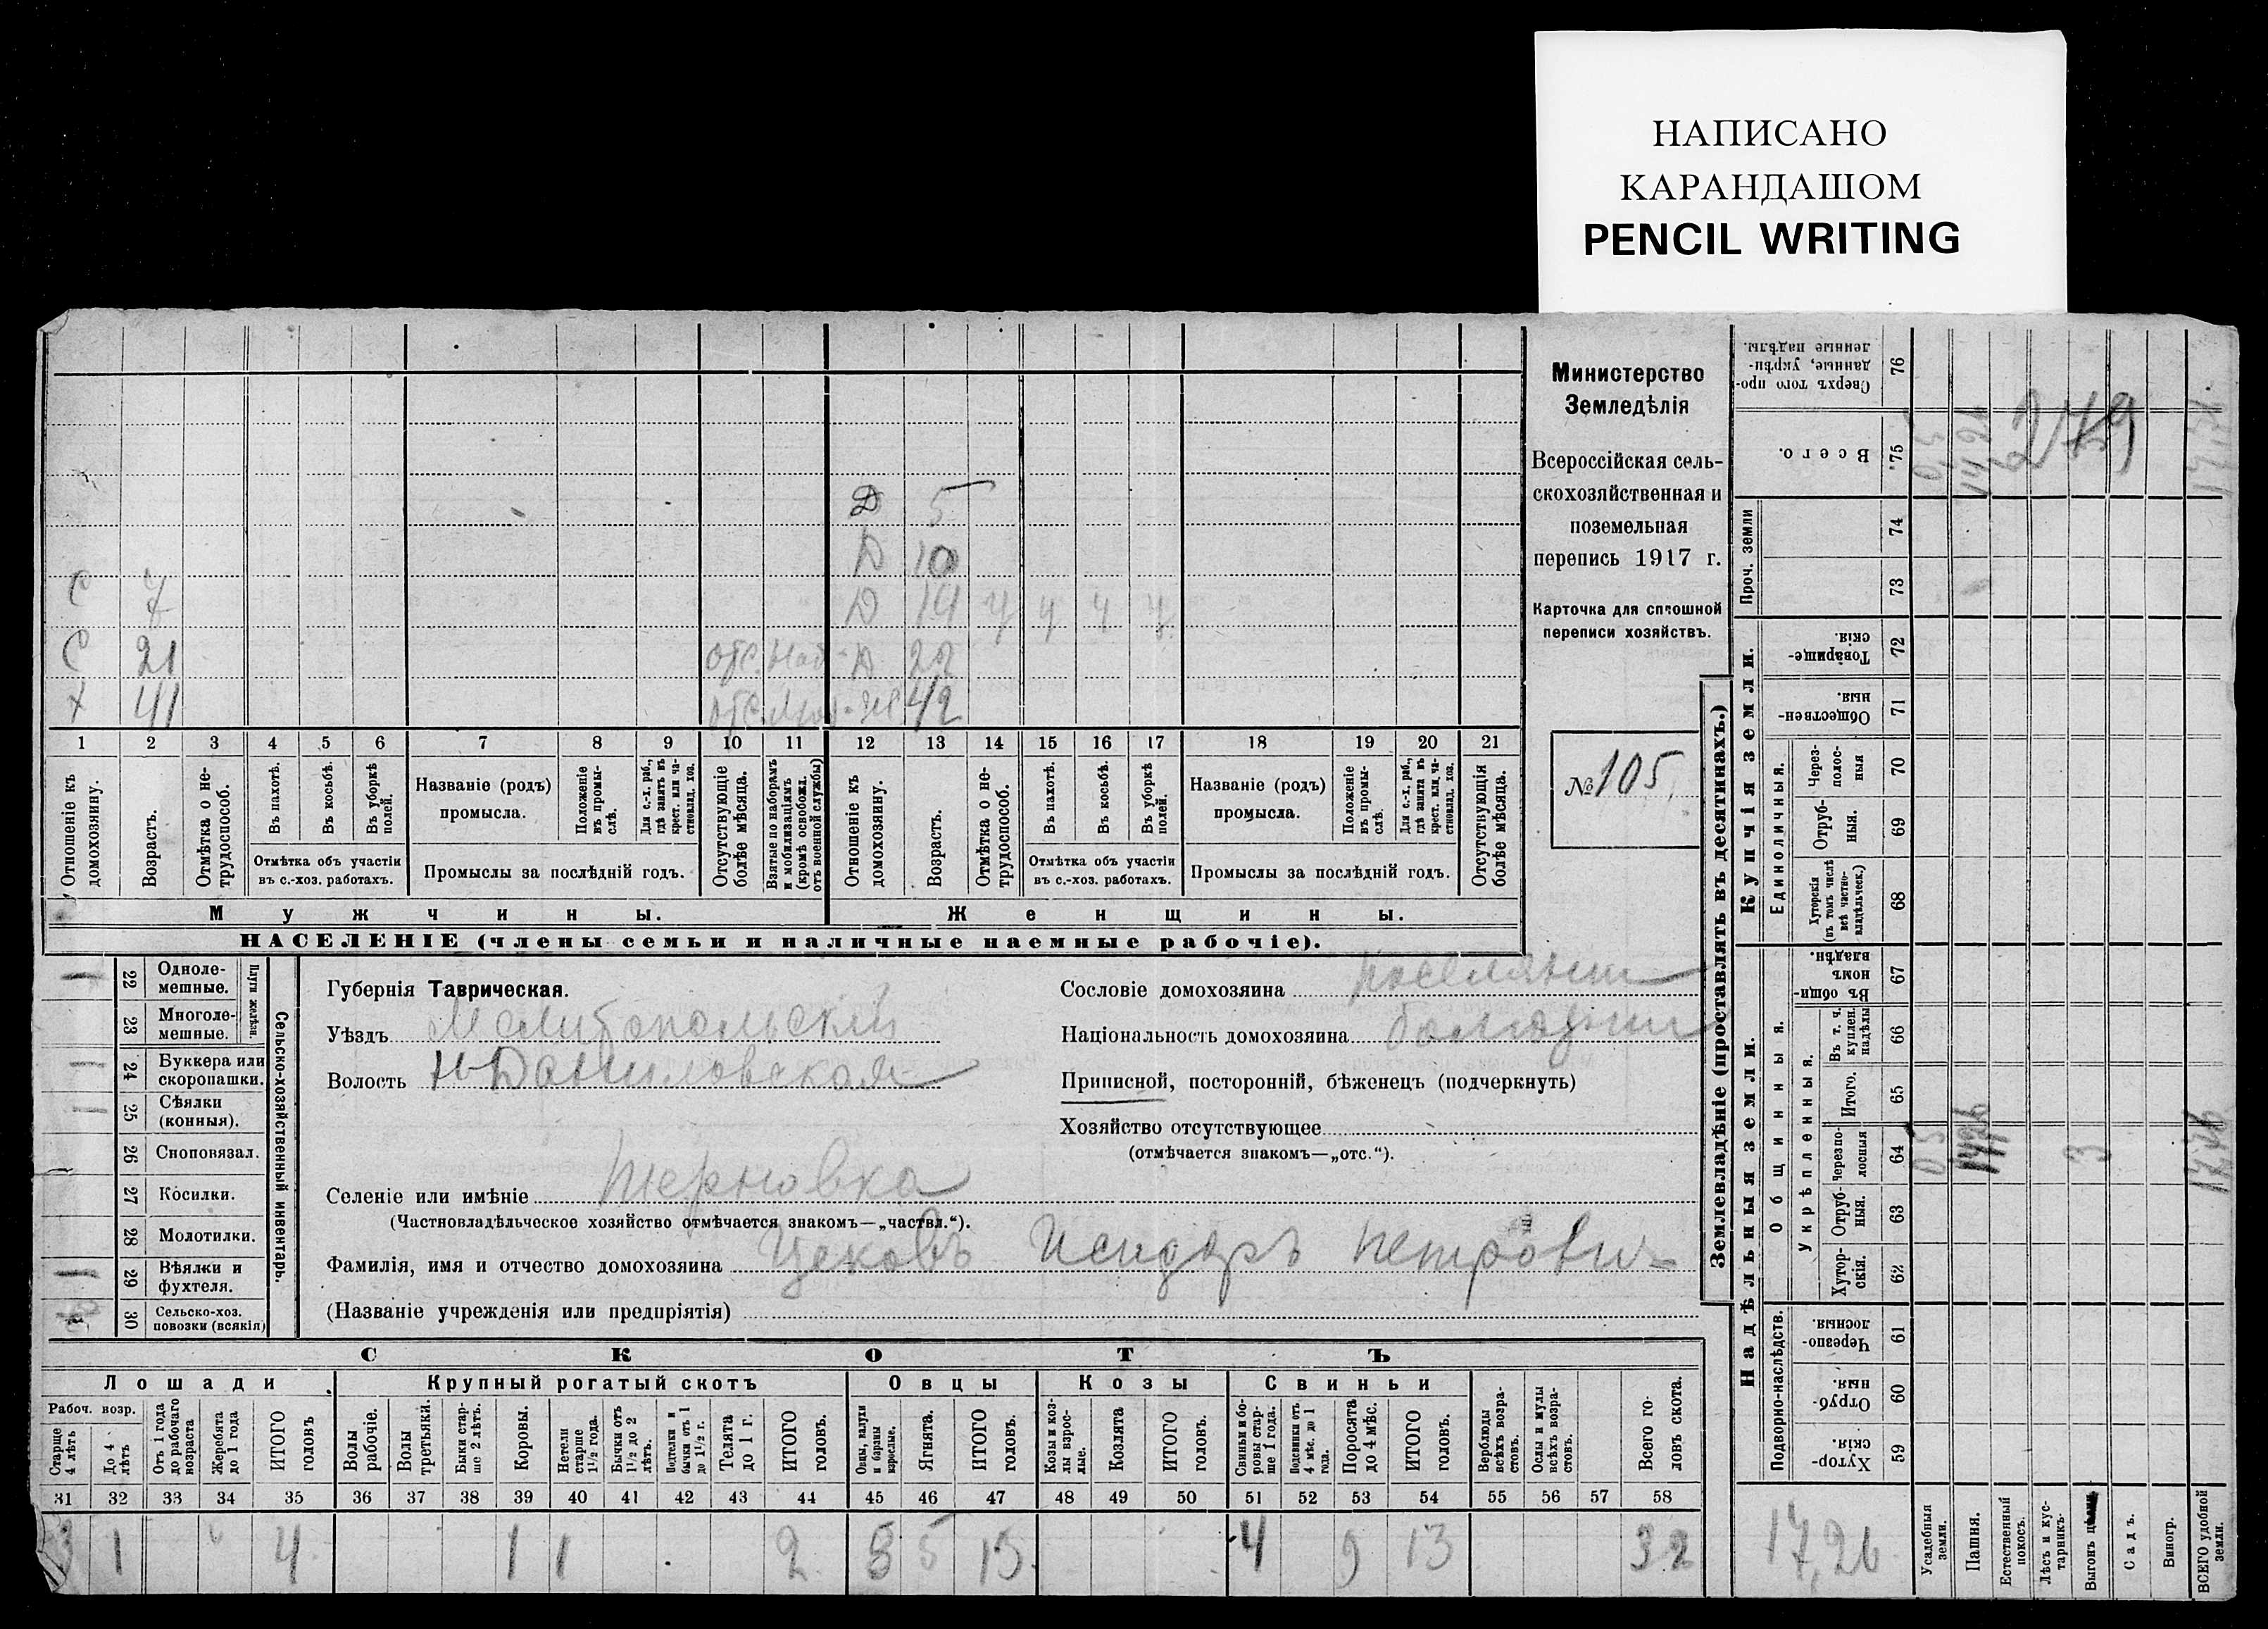 НАПИСАНО
КАРАНДАШОМ
PENCIL WRITING
Министерство
Земледѣлія
Всероссійская сель-
скохозяйственная и
поземельная
перепись 1917 г.
Карточка для сплошной
переписи хозяйствъ.
№ 105.
Д 5
Д 10
С 7 Д 14 ч ч ч ч
С 21 отс. Д 22
х 41 отс. 42
1 2 3 4 5 6 7 8 9 10 11 12 13 14 15 16 17 18 19 20 21
Отношеніе къ домохозяину.
Возрастъ.
Отмѣтка о не-трудоспособ.
Въ пахотѣ.
Въ косьбѣ.
Въ уборкѣ полей.
Отмѣтка объ участіи
въ с.-хоз. работахъ.
Названіе (родъ)
промысла.
Положеніе въ промы-слѣ.
Для с.-х. раб., гдѣ занятъ въ крест. или ча-стновлад. хоз.
Промыслы за послѣдній годъ.
Отсутствующіе болѣе мѣсяца.
Взятые по наборамъ и мобилизаціямъ (кромѣ освобожд. отъ военной службы)
Отношеніе къ домохозяину.
Возрастъ.
Отмѣтка о не-трудоспособ.
Въ пахотѣ.
Въ косьбѣ.
Въ уборкѣ полей.
Отмѣтка объ участіи
въ с.-хоз. работахъ.
Названіе (родъ)
промысла.
Положеніе въ промы-слѣ.
Для с.-х. раб., гдѣ занята въ крест. или ча-стновлад. хоз.
Промыслы за послѣдній годъ.
Отсутствующія болѣе мѣсяца.
Мужчины.
Женщины.
НАСЕЛЕНІЕ (члены семьи и наличные наемные рабочіе).
Сельско-хозяйственный инвентарь.
Плуги желѣзн.
1 22 Одноле-мешные.
23 Многоле-мешные.
1 24 Буккера или скоропашки.
1 25 Сѣялки (конныя).
26 Сноповязал.
27 Косилки.
28 Молотилки.
1 29 Вѣялки и фухтеля.
30 Сельско-хоз. повозки (всякія)
Губернія Таврическая.
Уѣздъ Мелитопольскій
Волость Н-Даниловская
Селеніе или имѣніе Терновка
(Частновладѣльческое хозяйство отмѣчается знакомъ—„частвл.“).
Фамилія, имя и отчество домохозяина Цековъ Исидоръ Петрович
(Названіе учрежденія или предпріятія)
Сословіе домохозяина поселянин
Національность домохозяина болгарин
Приписной, посторонній, бѣженецъ (подчеркнуть)
Хозяйство отсутствующее
(отмѣчается знакомъ—„отс.“).
СКОТЪ
Лошади Крупный рогатый скотъ Овцы Козы Свиньи
Рабоч. возр.
Старше 4 лѣтъ
До 4 лѣтъ
Отъ 1 года до рабочаго возраста
Жеребята до 1 года
ИТОГО головъ
Волы рабочіе.
Волы третьяки.
Быки стар-ше 2 лѣтъ.
Коровы.
Нетели старше 1½ года.
Бычки отъ 1½ до 2 лѣтъ.
Подтелки и бычки отъ 1 до 1½ г.
Телята до 1 г.
ИТОГО головъ.
Овцы, валухи и бараны взрослые.
Ягнята.
ИТОГО головъ.
Козы и коз-лы взрос-лые.
Козлята
ИТОГО головъ.
Свиньи и бо-ровы стар-ше 1 года.
Подсвинки отъ 4 мѣс. до 1 года.
Поросята до 4 мѣс.
ИТОГО головъ.
Верблюды всѣхъ возра-стовъ.
Ослы и мулы всѣхъ возра-стовъ.
Всего го-ловъ скота.
31 32 33 34 35 36 37 38 39 40 41 42 43 44 45 46 47 48 49 50 51 52 53 54 55 56 57 58
3 1 4 1 1 2 8 5 13 4 9 13 32
Землевладѣніе (проставлять въ десятинахъ.)
Купчія земли.
Надѣльныя земли.
Сверхъ того про-данные, укрѣп-ленные надѣлы. 76
Всего. 75
Проч. земли 74 73
Товарище-скія. 72
Обществен-ныя. 71
Единоличныя.
Через-полос-ныя 70
Отруб-ныя. 69
Хуторскія (въ томъ числѣ всѣ частно-владѣльческ.) 68
Общинныя.
Укрѣпленныя.
Въ общи-номъ владѣн. 67
Въ т. ч. куплен. надѣлы 66
Итого. 65
Черезпо-лосныя 64
Отруб-ныя. 63
Хутор-скія. 62
Подворно-наслѣдств.
Черезпо-лосныя. 61
Отруб-ныя. 60
Хутор-скія. 59
249
0,5 14,26 17,26
0,5 14,26 3 17,26
17,26
Усадебныя земли.
Пашня.
Естественный покосъ.
Лѣсъ и кус-тарникъ.
Выгонъ
Садъ.
Виногр.
ВСЕГО удобной земли.